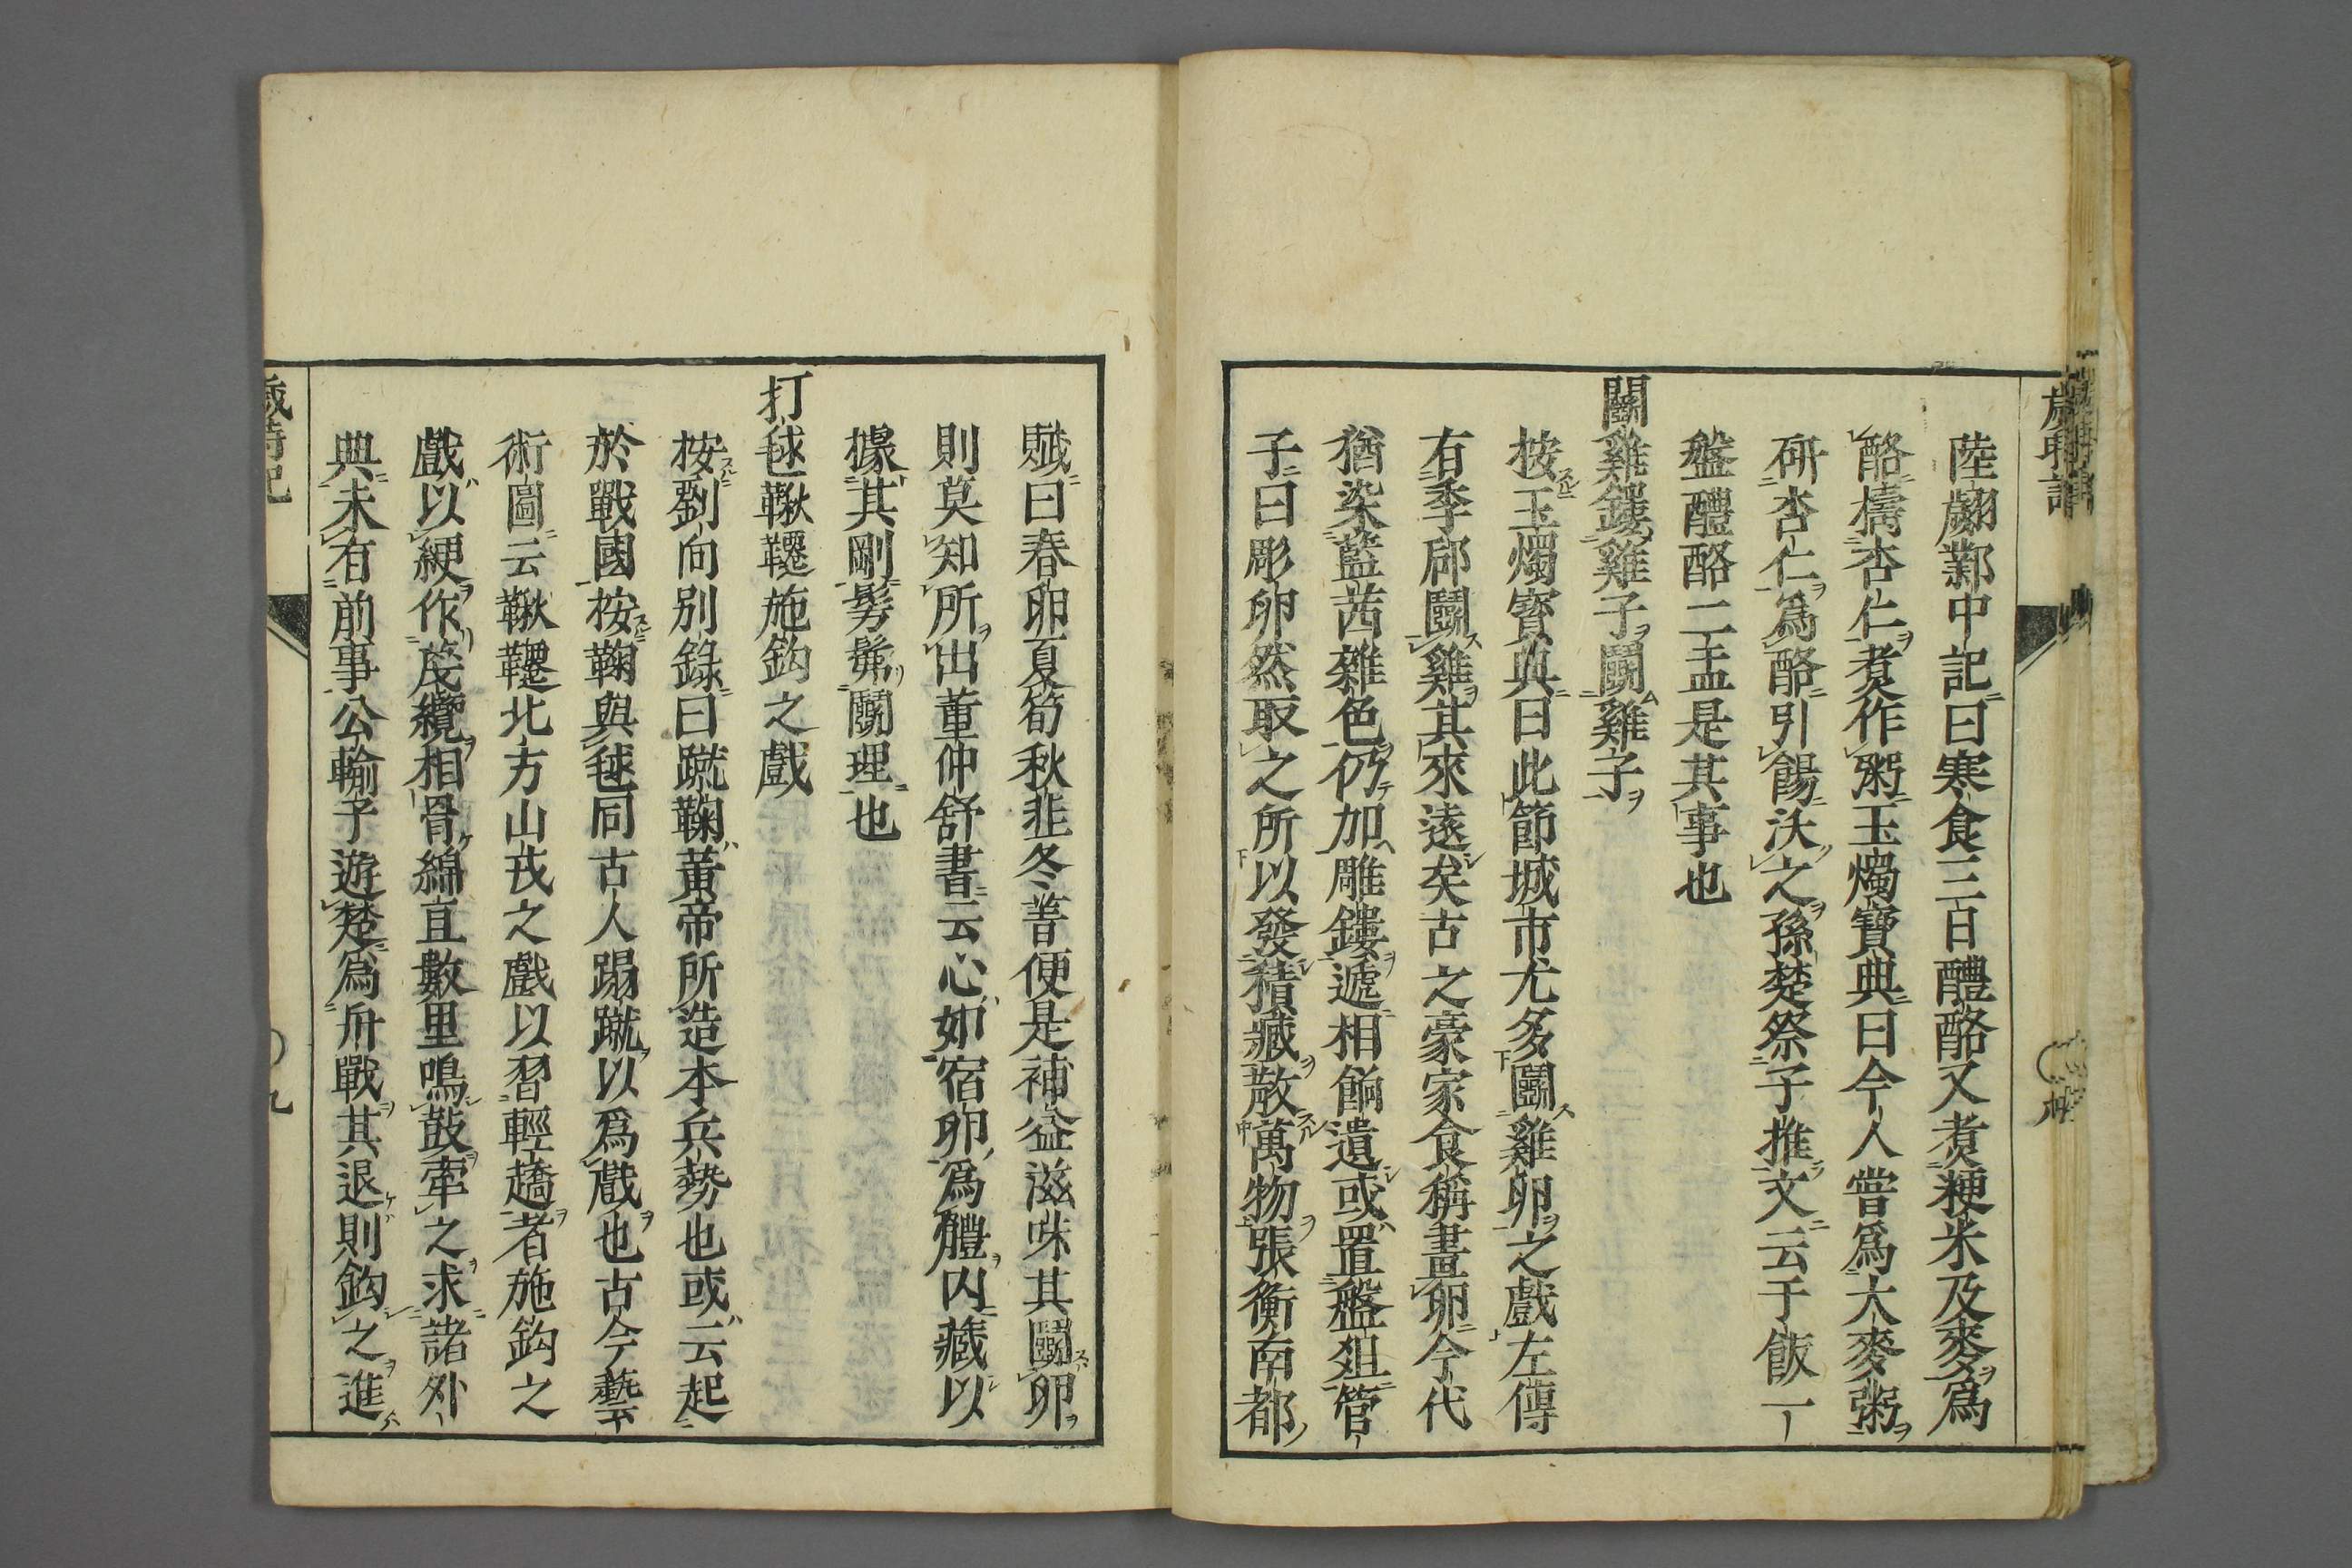 陸翽鄴中記曰寒食三日醴酪又煑粳米及麥爲
酪擣杏仁煑作粥玉燭寶典曰今人嘗爲大麥粥
研杏仁爲酪引餳沃之孫楚祭子推文云于飯一
盤醴酪二盂是其事也
鬭雞鏤雞子鬭雞子
按玉燭寶典曰此節城市尤多鬭雞卵之戲左傳
有季郈鬭雞其來遠矣古之豪家食稱畫卵今代
猶染藍茜雜色仍加雕鏤遞相餉遺或置盤俎管
子曰彫卵然取之所以發積藏散萬物張衡南都
賦曰春卵夏筍秋韭冬菁便是補益滋味其鬭卵
則莫知所出董仲舒書云心如宿卵爲體内藏以
據其剛髣髴鬭理也
打毬鞦韆施鈎之戲
按劉向别錄曰蹴鞠黃帝所造本兵勢也或云起
於戰國按鞠與毬同古人蹋蹴以爲戲也古今藝
術圖云鞦韆北方山戎之戲以習輕趫者施鈎之
戲以綆作篾纜相𮌎綿亘數里鳴鼓牽之求諸外
典未有前事公輸子遊楚爲舟戰其退則鈎之進
歲時記
九